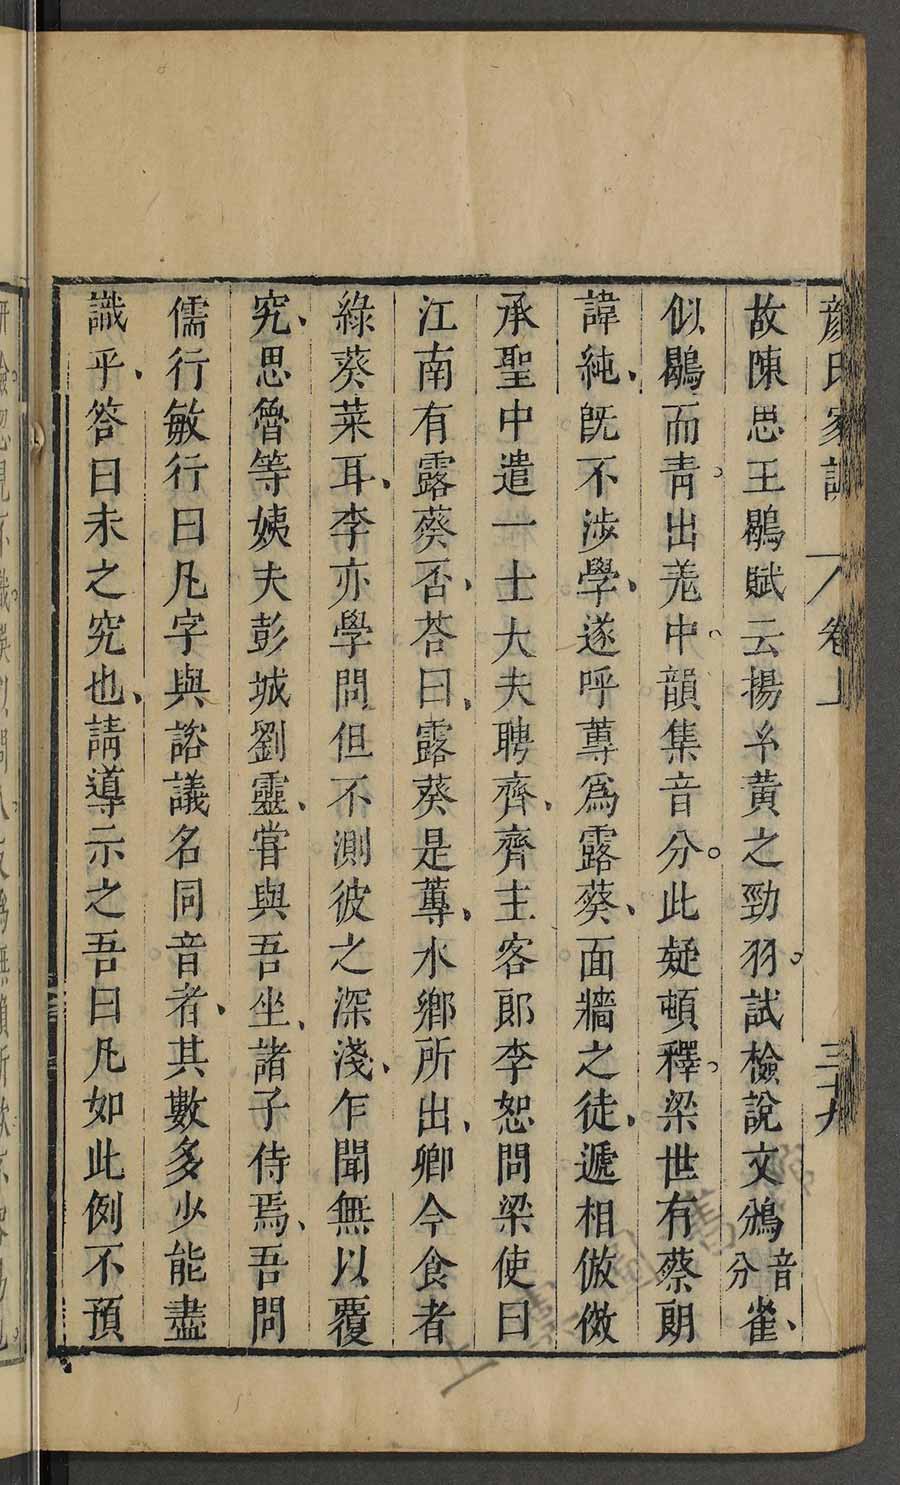 顔氏家訓 卷上 三十九
故陳思王鶡賦云揚糸黃之勁羽。試檢說文鳻音分雀、
似鶡而靑。出羗中。韻集音分。此疑頓釋。梁世有蔡朗
諱純、旣不涉學、遂呼蓴爲露葵、面牆之徒、遞相倣傚
承聖中遣一士大夫聘齊、齊主客郎李恕問梁使曰
江南有露葵否、荅曰、露葵是蓴、水鄉所出、卿今食者
綠葵菜耳、李亦學問但不測彼之深淺、乍聞無以覆
究、思魯等姨夫彭城劉靈、嘗與吾坐、諸子侍焉、吾問
儒行敏行曰凡字與諮議名同音者、其數多少能盡
識乎、答曰未之究也、請導示之吾曰凡如此例不預